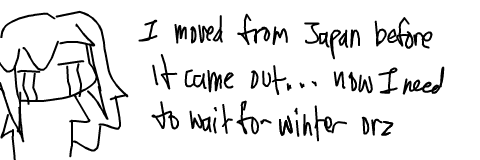 I moved from Japan before
it came out... now I need
to wait for winter orz